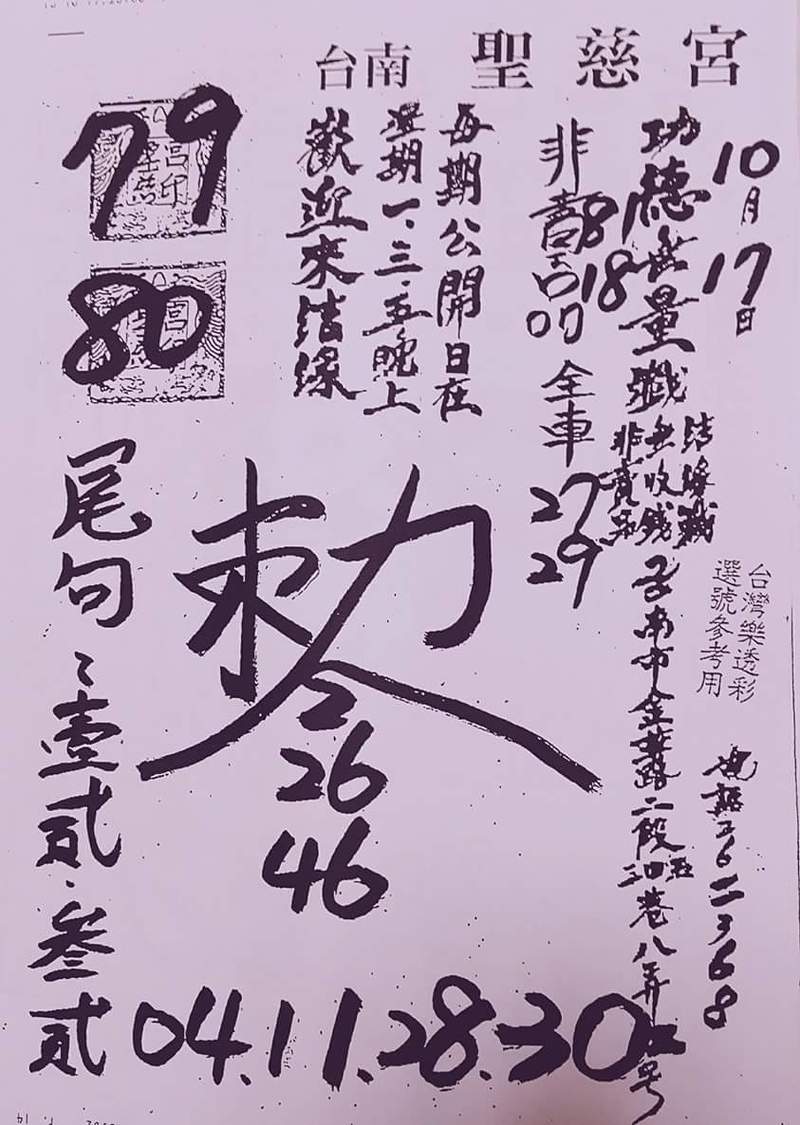 台南 聖慈宮
10月17日
功德無量
結緣
無收錢
非賣品
非賣品
81
18
全車
27
29
每期公開日在
星期一、三、五晚上
歡迎來結緣
79
80
台灣樂透彩
選號參考用
台南市金華路二段三四五巷八弄 号
電話2622368
敕
2
26
46
尾句
壹貳
叁貳
04.11.28.30